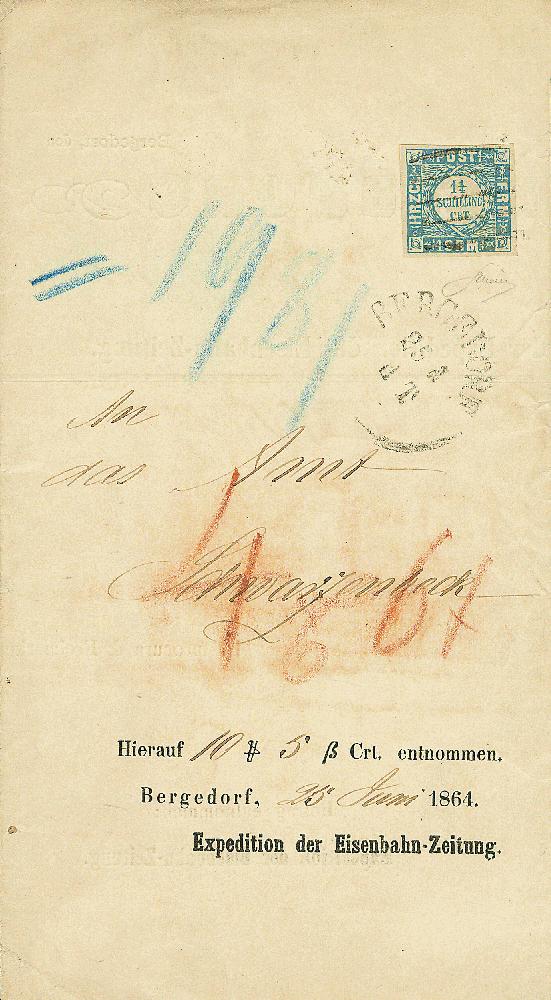 POST
HRZGL
FRM
1¼
SCHILLING
CRT.
= 1981
BERGEDORF
25
An
das Amt
Schwarzenbeck
Hierauf 10 ₰ 5 ß Crt. entnommen.
Bergedorf, 25 Juni 1864.
Expedition der Eisenbahn-Zeitung.